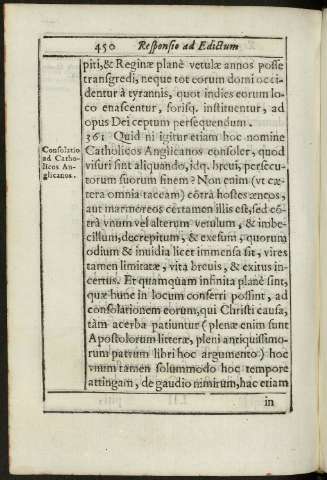 450 Responsio ad Edictum
piti, & Reginæ planè vetulæ annos posse
transgredi, neque tot eorum domi occi-
dentur à tyrannis, quot indies eorum lo-
co enascentur, forisq. instituentur, ad
opus Dei cęptum persequendum.
361 Quid ni igitur etiam hoc nomine
Catholicos Anglicanos consoler, quod
visuri sint aliquando, idq. breui, persecu-
torum suorum finem? Non enim (vt cæ-
tera omnia taceam) cōtrà hostes æneos,
aut marmoreos certamen illis est, sed cō-
trà vnum vel alterum vetulum, & imbe-
cillum, decrepitum, & exesum, quorum
odium & inuidia licet immensa sit, vires
tamen limitatæ, vita breuis, & exitus in-
certus. Et quamquàm infinita planè sint,
quæ hunc in locum conferri possint, ad
consolationem eorum, qui Christi causa,
tàm acerba patiuntur (plenæ enim sunt
Apostolorum litteræ, pleni antiquissimo-
rum patrum libri hoc argumento) hoc
vnum tamen solummodo hoc tempore
attingam, de gaudio nimirum, hac etiam
in
Consolatio
ad Catho-
licos An-
glicanos.